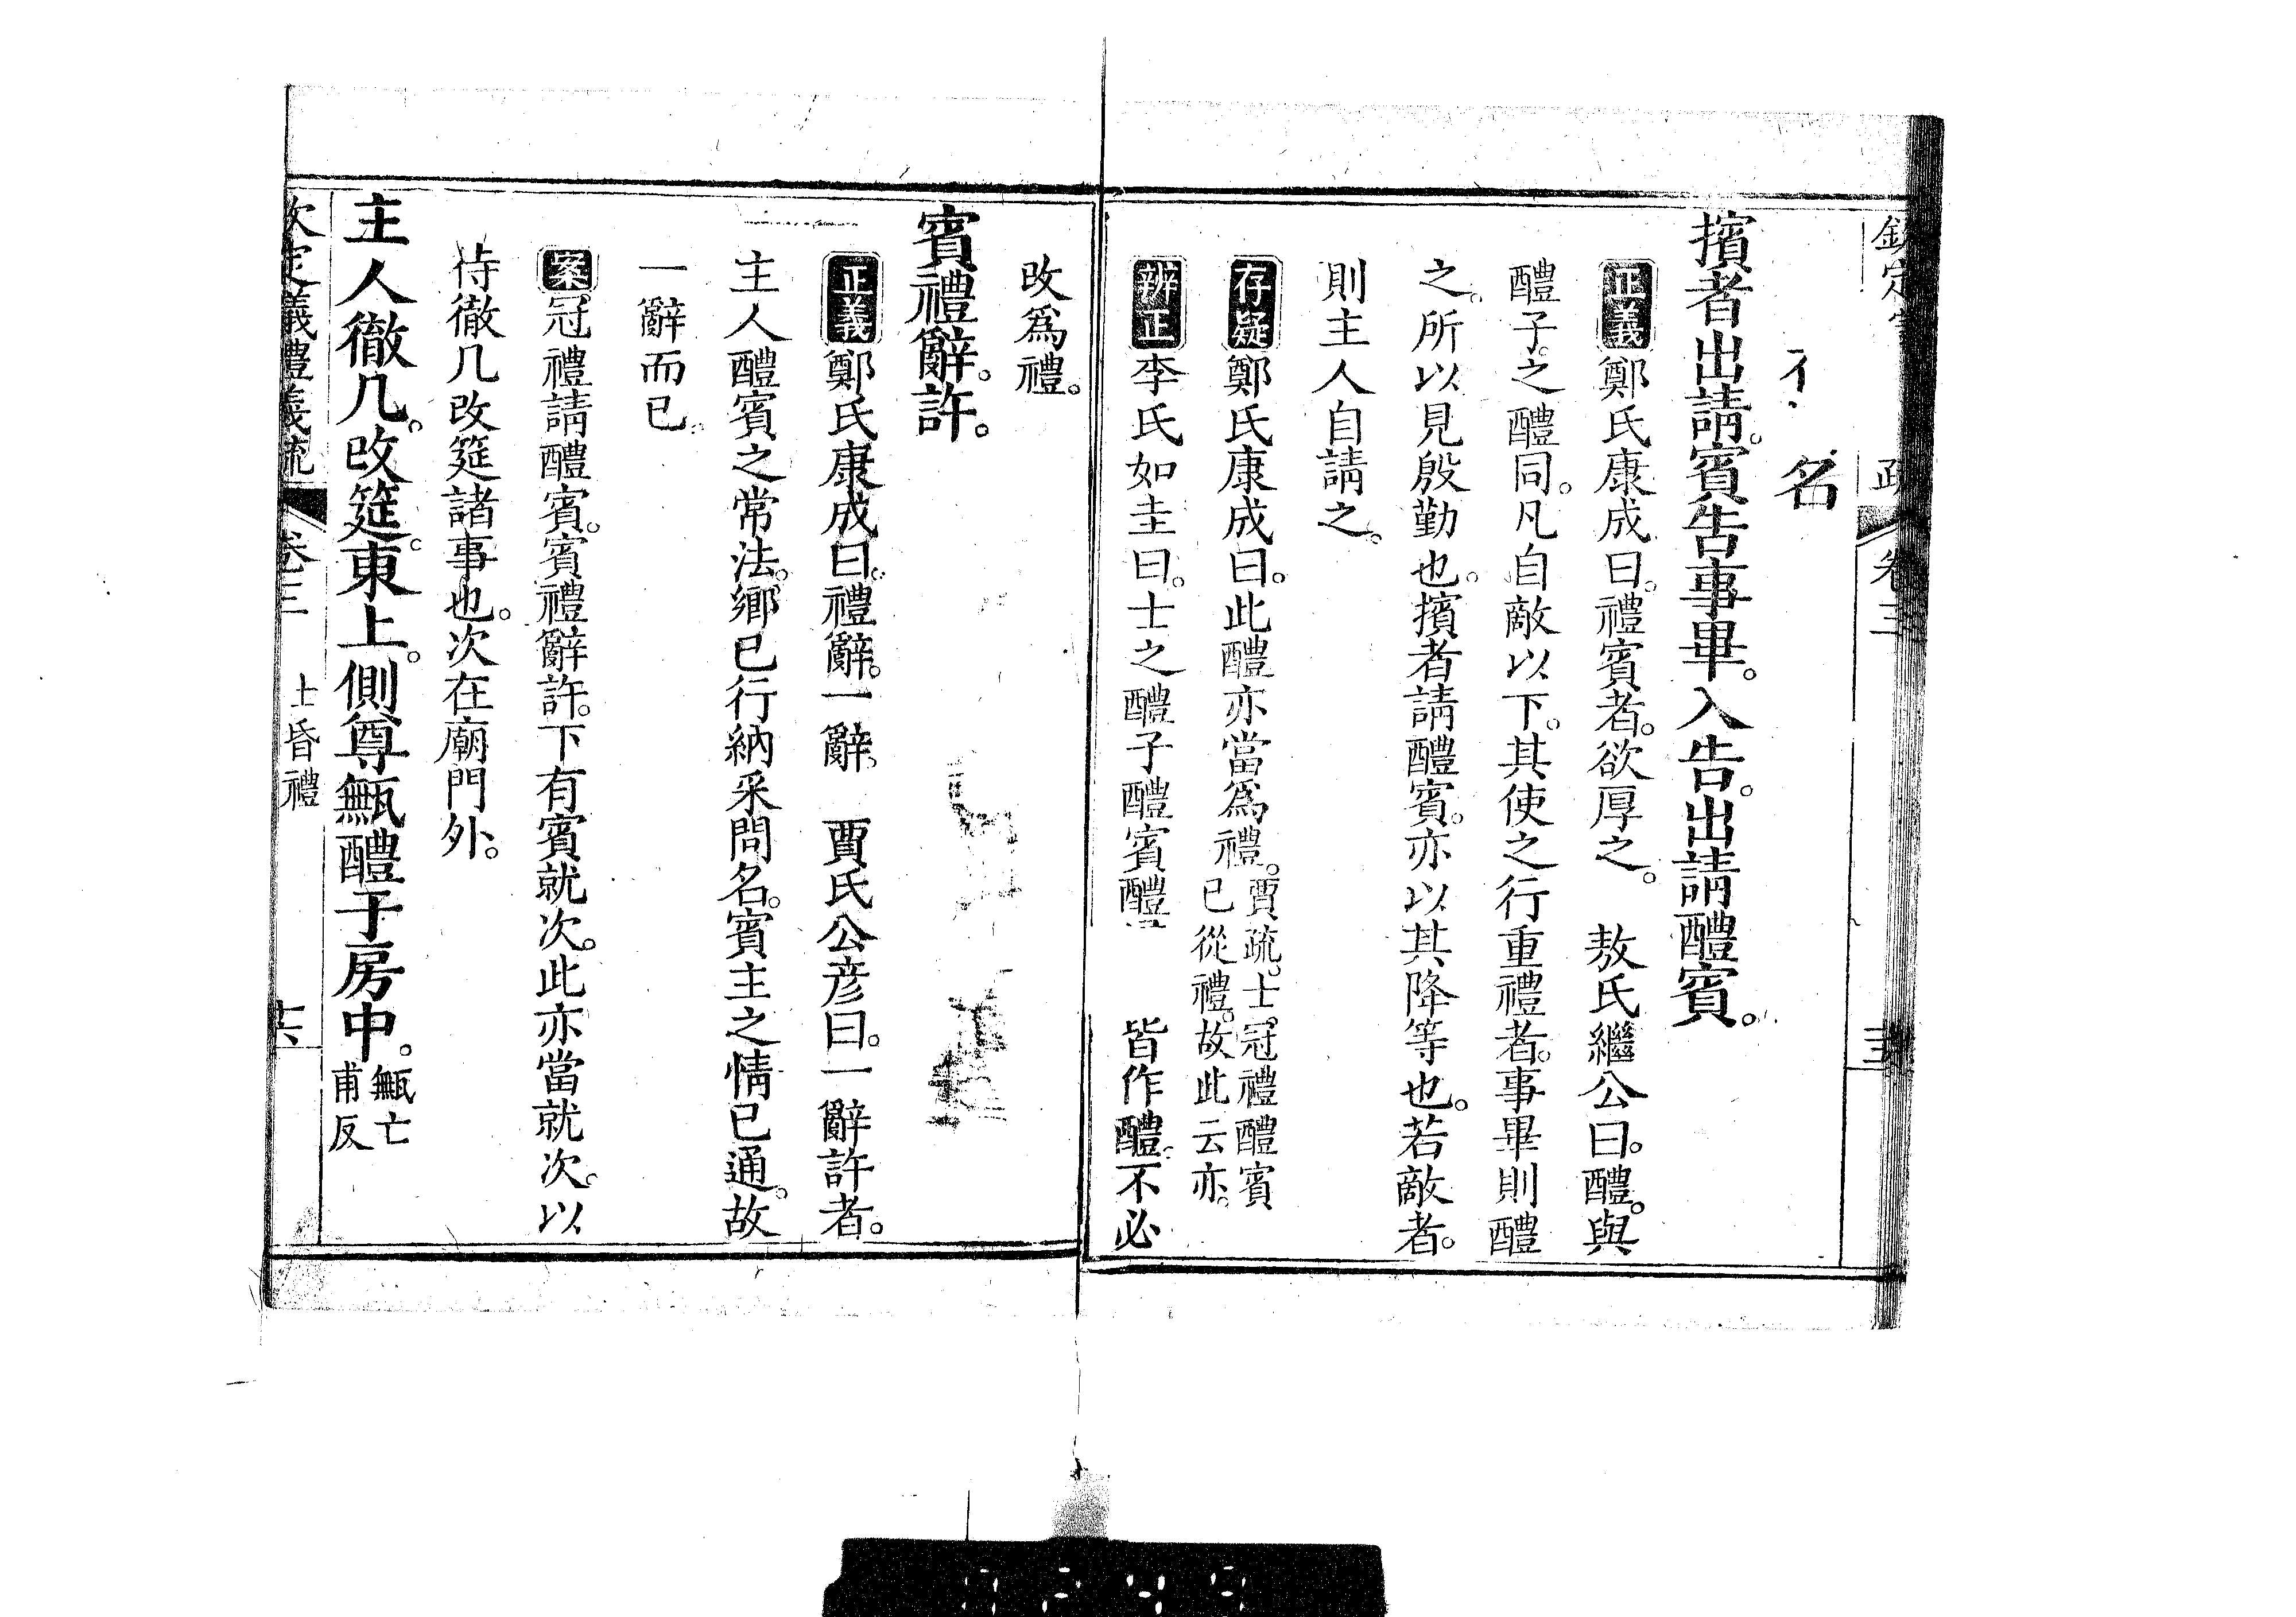 名
擯者出請。賓告事畢。入告。出請醴賓。
正義鄭氏康成曰。禮賓者。欲厚之。 敖氏繼公曰。醴。與
醴子。之醴同。凡自敵以下。其使之行重禮者。事畢則醴
之。所以見殷勤也。擯者請醴賓。亦以其降等也。若敵者。
則主人自請之。
存疑鄭氏康成曰。此醴亦當爲禮。賈疏。士。冠禮醴賓
已從禮。故此云亦。
辨正李氏如圭曰。士之醴子醴賓醴 皆作醴。不必
改爲禮。
賓禮辭。許。
正義鄭氏康成曰。禮辭。一辭。 賈氏公彦曰。一辭許者。
主人醴賓之常法。鄉已行納采問名。賓主之情已通。故
一辭而已。
案冠禮請醴賓。賓禮辭許。下有賓就次。此亦當就次。以
待徹几改筵諸事也。次在廟門外。
主人徹几。改筵。東上。側尊甒醴于房中。甒亡
甫反
欽定儀禮義疏 卷三 士昏禮 十六